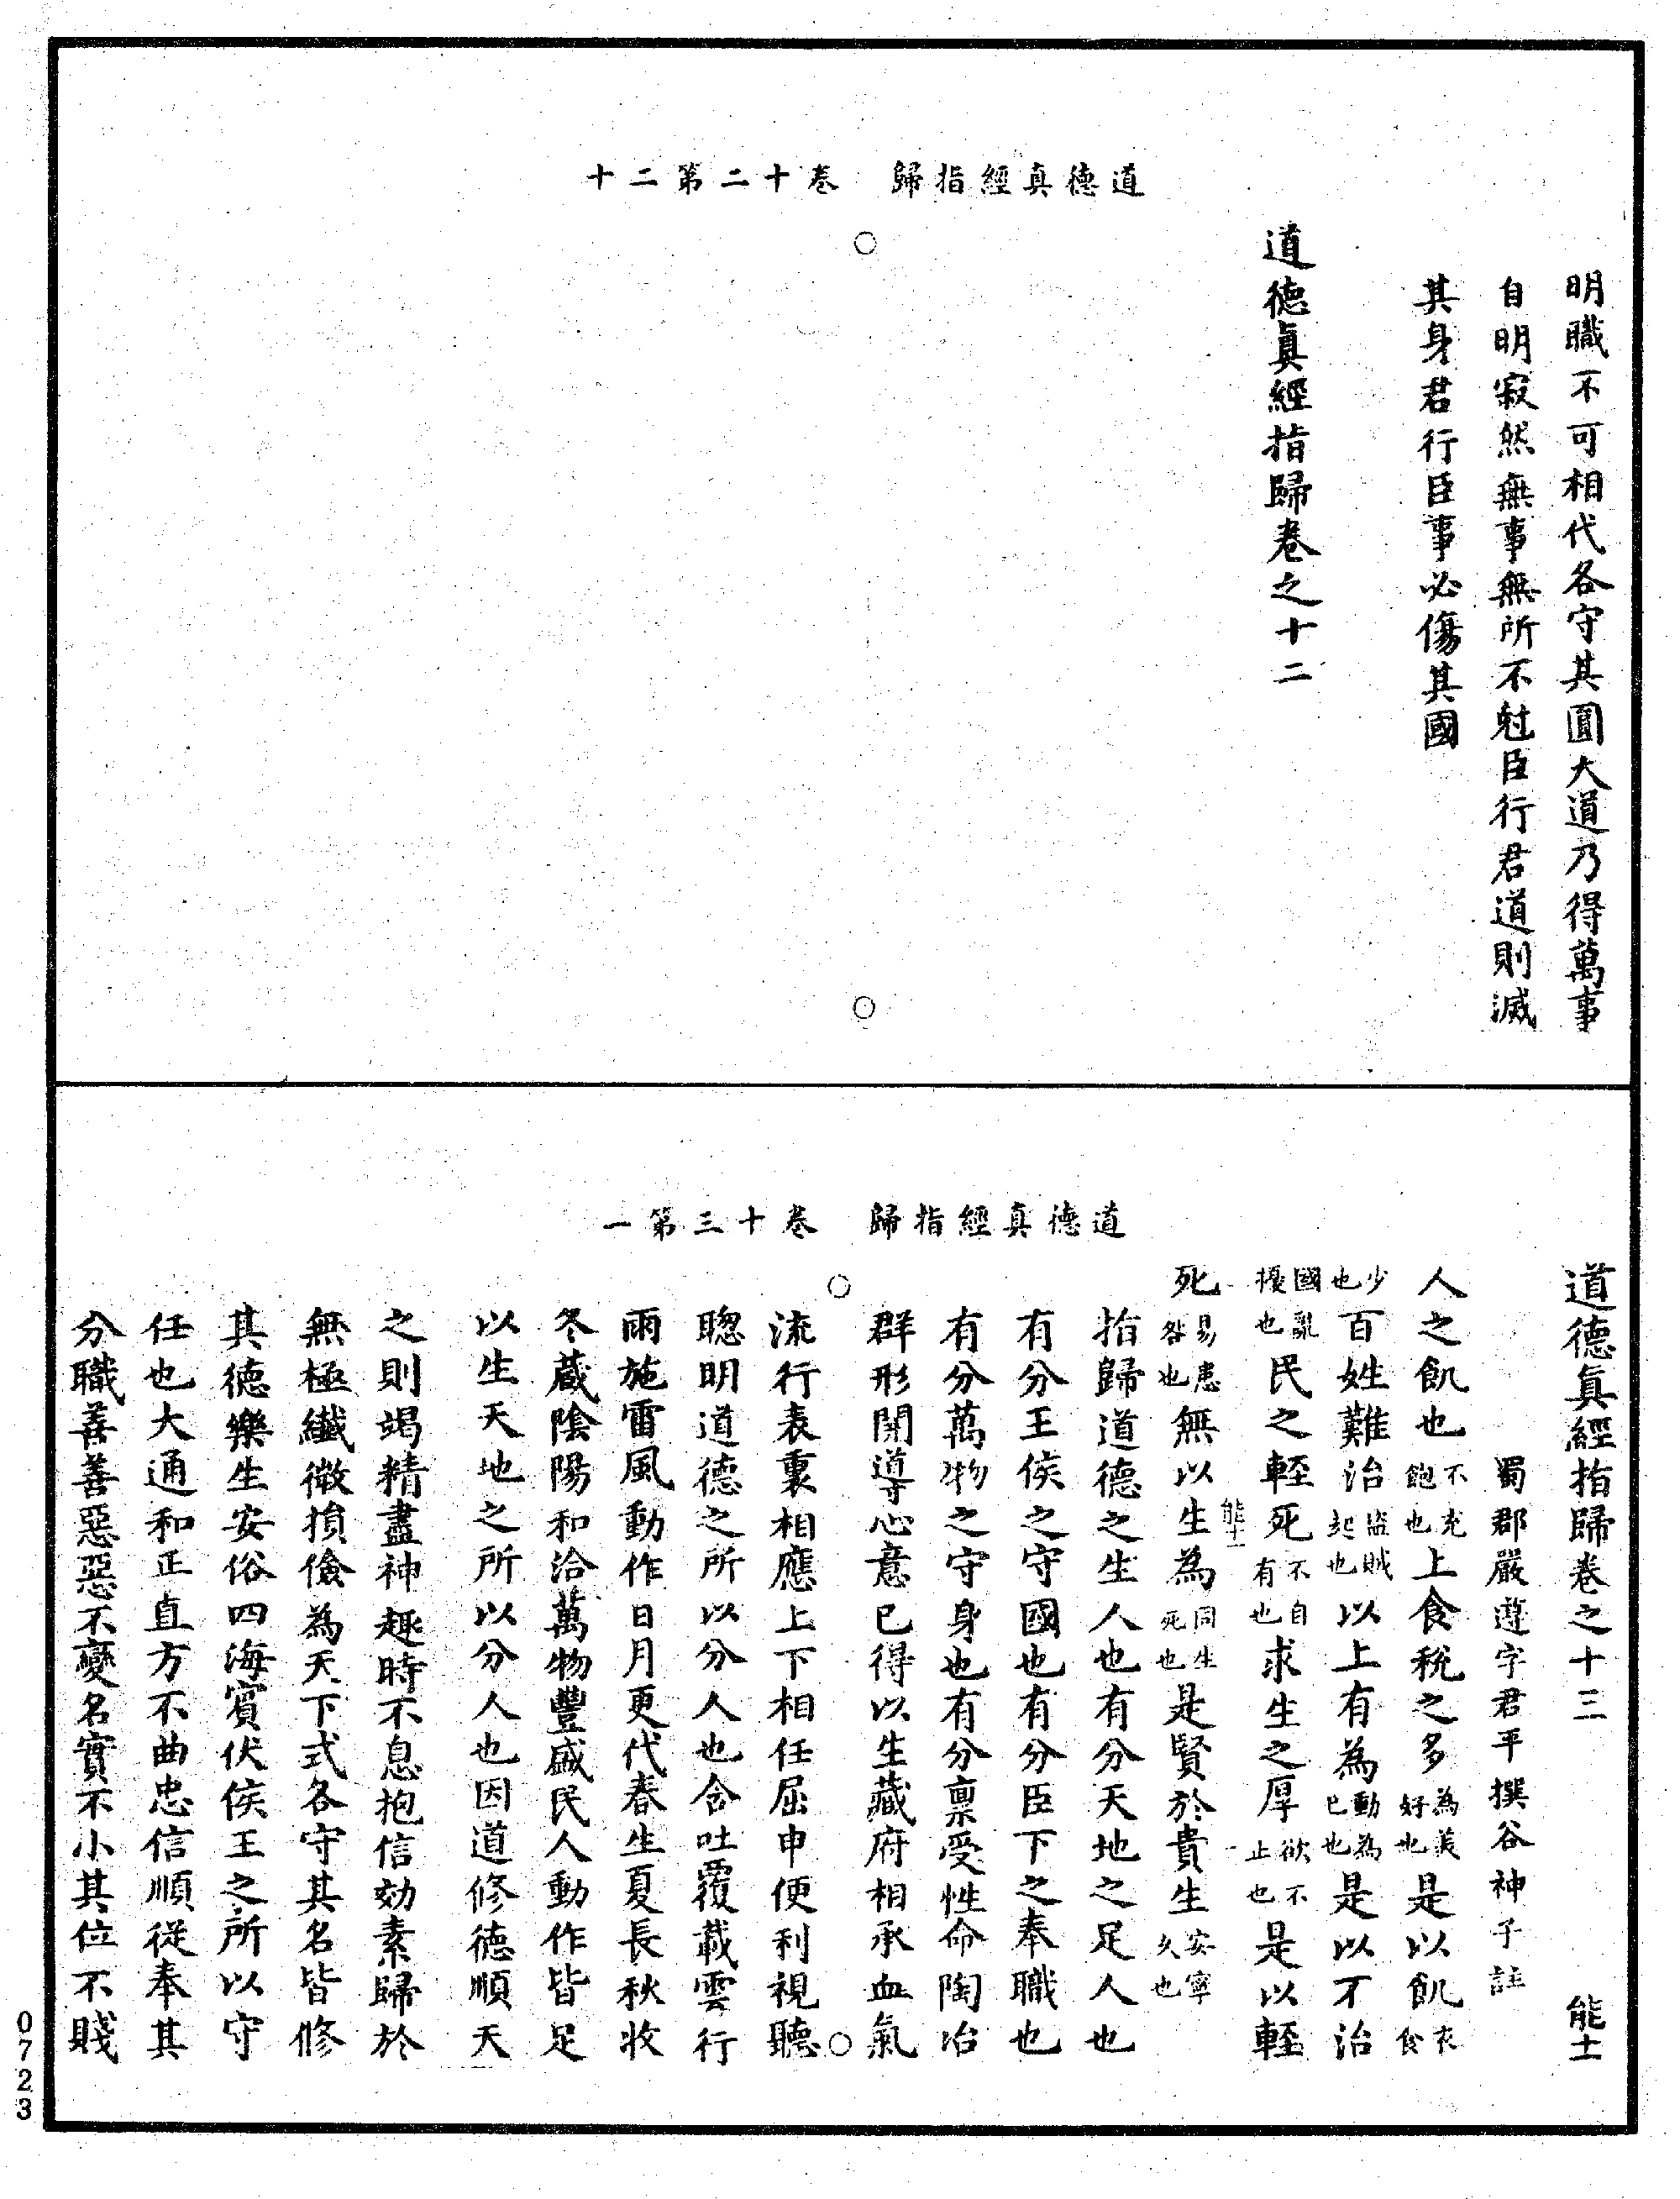 道德真經指歸　卷十二第二十
明職不可相代各守其圓大道乃得萬事
自明寂然無事無所不尅臣行君道則滅
其身君行臣事必傷其國
道德真經指歸卷之十二
道德真經指歸　卷十三第一
道德真經指歸卷之十三　能士
蜀郡嚴遵字君平撰谷神子註
人之飢也不充飽也上食稅之多為美好也是以飢衣食
少也百姓難治盜賊起也以上有為動為已也是以不治
國亂擾也民之輕死不自有也求生之厚欲不止也是以輕
死易患咎也無以生為同生死也是賢於貴生安寧久也
能士一
指歸道德之生人也有分天地之足人也
有分王侯之守國也有分臣下之奉職也
有分萬物之守身也有分稟受性命陶冶
群形開導心意已得以生藏府相承血氣
流行表裏相應上下相任屈申便利視聽
聰明道德之所以分人也含吐覆載雲行
雨施雷風動作日月更代春生夏長秋收
冬藏陰陽和洽萬物豐盛民人動作皆足
以生天地之所以分人也因道修德順天
之則竭精盡神趣時不息抱信効素歸於
無極纖微損儉為天下式各守其名皆修
其德樂生安俗四海賓伏侯王之所以守
任也大通和正直方不曲忠信順從奉其
分職善善惡惡不變名實不小其位不賤
0723